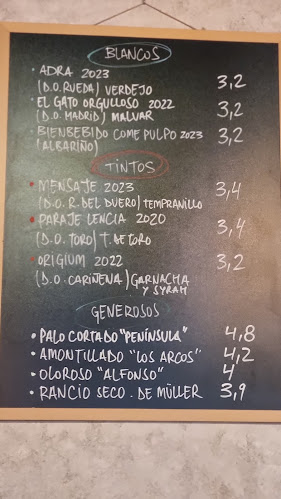 BLANCOS
• ADRA 2023 3,2
(D.O. RUEDA) VERDEJO
• EL GATO ORGULLOSO 2022 3,2
(D.O. MADRID) MALVAR
• BIENBEBIDO COME PULPO 2023 3,2
(ALBARIÑO)
TINTOS
• MENSAJE 2023 3,4
(D.O. R. DEL DUERO) TEMPRANILLO
• PARAJE LENCIA 2020 3,4
(D.O. TORO) T. DE TORO
• ORIGIUM 2022 3,2
(D.O. CARIÑENA) GARNACHA
Y SYRAH
GENEROSOS
• PALO CORTADO "PENÍNSULA" 4,8
• AMONTILLADO "LOS ARCOS" 4,2
• OLOROSO "ALFONSO" 4
• RANCIO SECO. DE MÜLLER 3,9